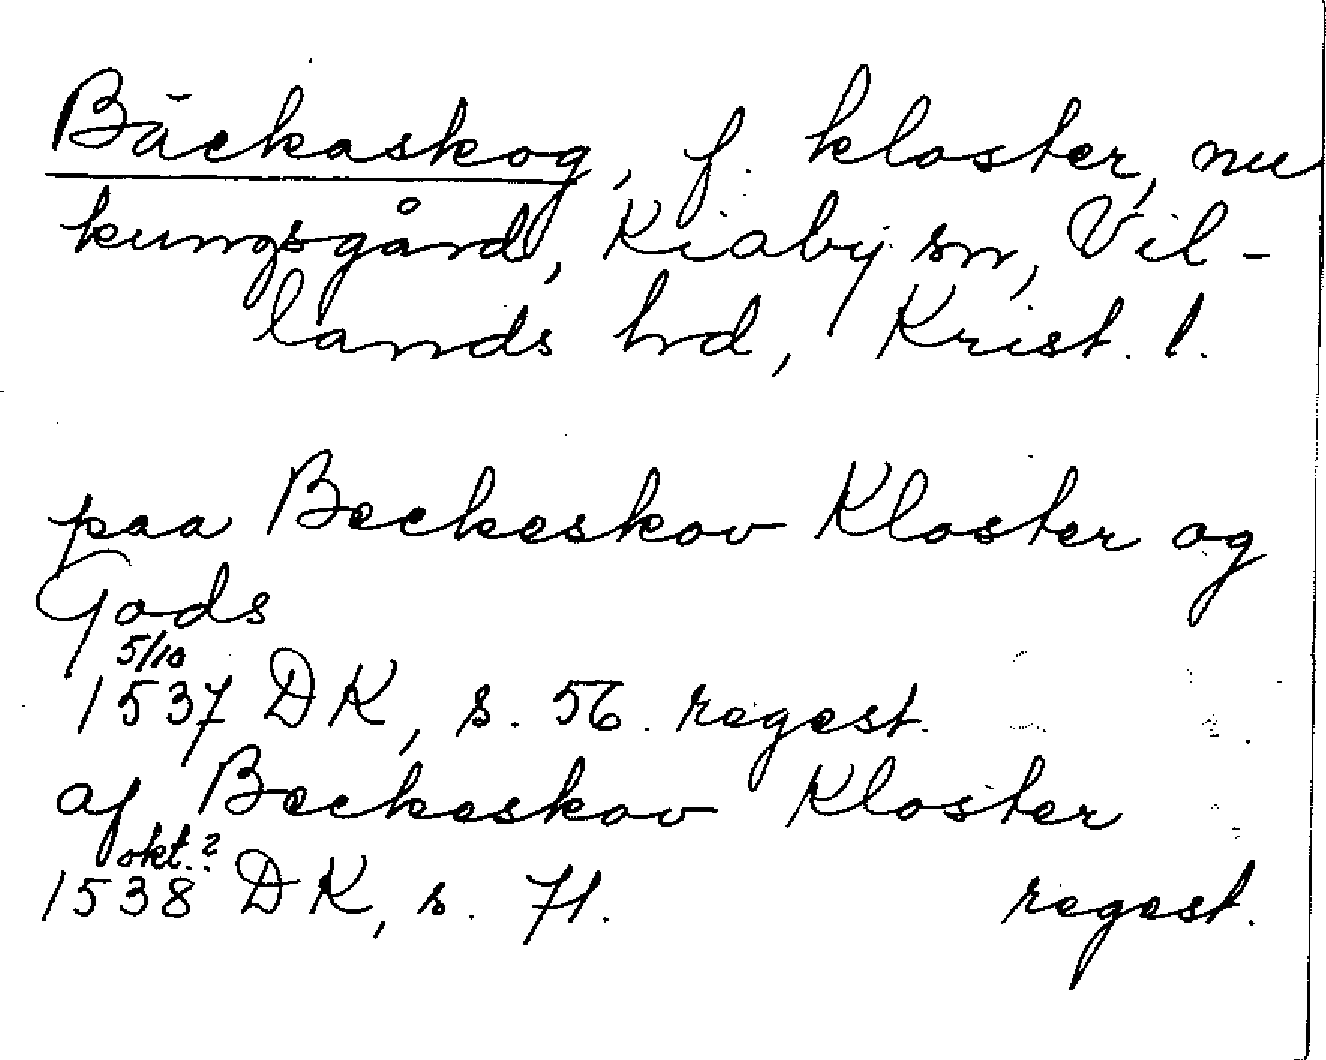 Bäckaskog, f. kloster, nu
kungsgård, Kiaby sn, Vil-
lands hd, Krist. l.
paa Beckeskov Kloster og
Gods
5/10
1537 DK, s. 56. regest.
af Beckeskov Kloster
okt.?
1538 DK, s. 71. regest.